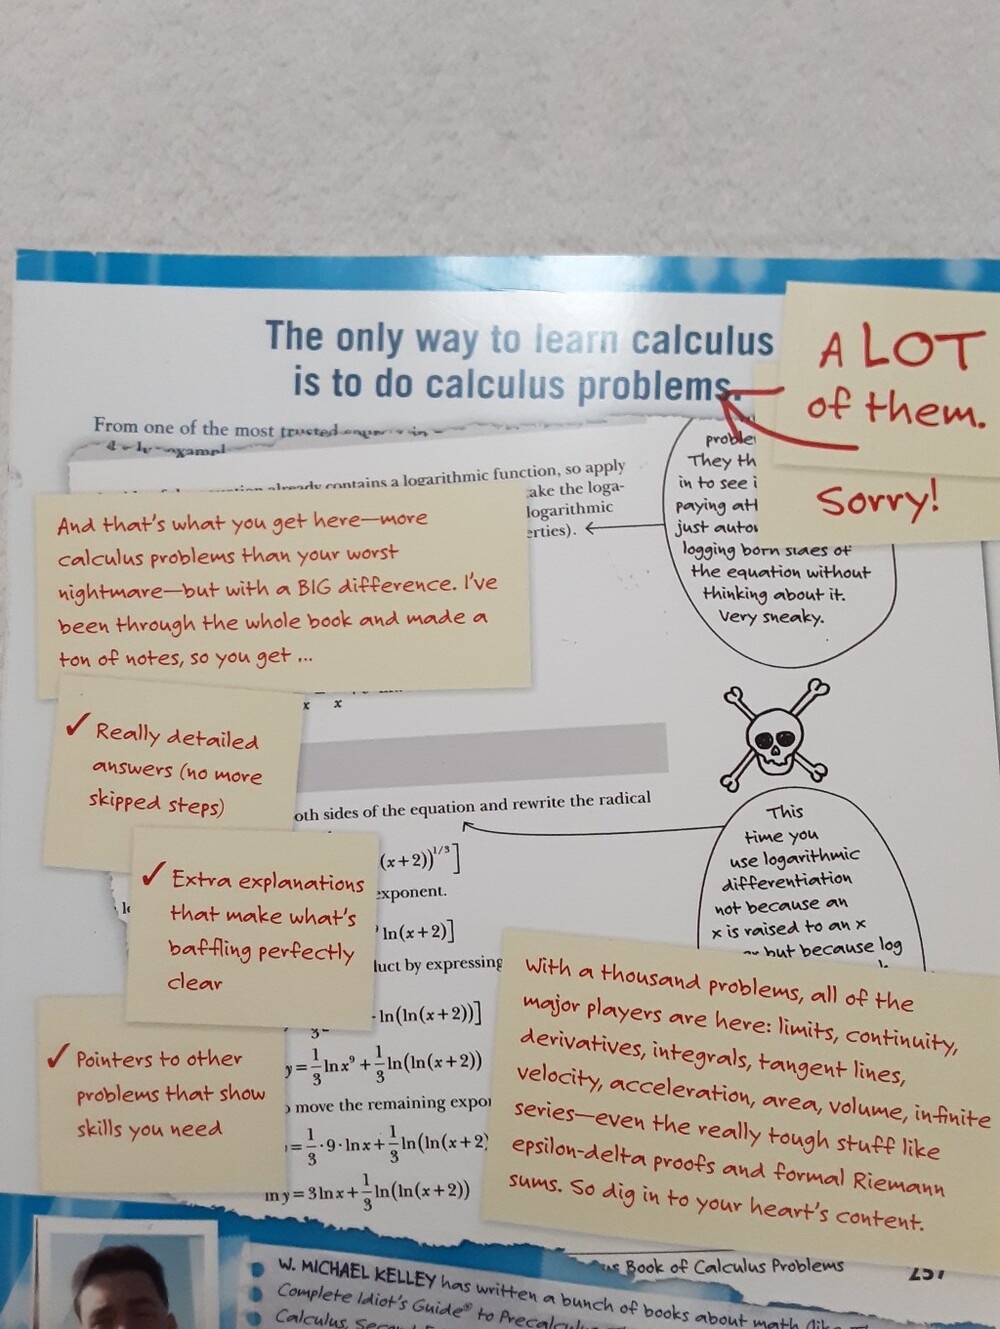 The only way to learn calculus
is to do calculus problems.
A LOT
of them.
Sorry!
From one of the most trusted
already contains a logarithmic function, so apply
take the loga-
logarithmic
erties).
proble
They th
in to see i
paying att
just auto
logging both sides of
the equation without
thinking about it.
Very sneaky.
And that's what you get here—more
calculus problems than your worst
nightmare—but with a BIG difference. I've
been through the whole book and made a
ton of notes, so you get ...
x x
✓ Really detailed
answers (no more
skipped steps)
oth sides of the equation and rewrite the radical
(x+2))^{1/3}]
exponent.
ln(x+2)]
duct by expressing
ln(ln(x+2))]
y = 1/3 ln x⁹ + 1/3 ln(ln(x+2))
move the remaining expo
= 1/3 · 9 · ln x + 1/3 ln(ln(x+2)
ln y = 3 ln x + 1/3 ln(ln(x+2))
✓ Extra explanations
that make what's
baffling perfectly
clear
✓ Pointers to other
problems that show
skills you need
This
time you
use logarithmic
differentiation
not because an
x is raised to an x
but because log
With a thousand problems, all of the
major players are here: limits, continuity,
derivatives, integrals, tangent lines,
velocity, acceleration, area, volume, infinite
series—even the really tough stuff like
epsilon-delta proofs and formal Riemann
sums. So dig in to your heart's content.
Book of Calculus Problems
257
W. MICHAEL KELLEY has written a bunch of books about math
Complete Idiot's Guide® to
Calculus,